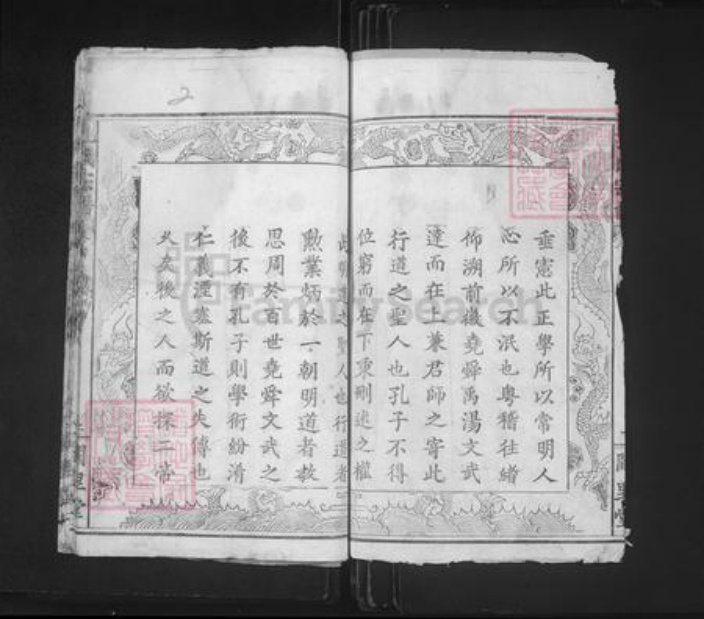 垂憲此正學所以常明人
心所以不泯也粤稽往緒
仰溯前徽堯舜禹湯文武
達而在上兼君師之寄此
行道之聖人也孔子不得
位窮而在下秉刪述之權
此明道之聖人也行道者
勲業炳於一朝明道者教
思周於百世堯舜文武之
後不有孔子則學術紛淆
仁義湮塞斯道之失傳也
久矣後之人而欲探二帝
闕里堂
FamilySearch
2